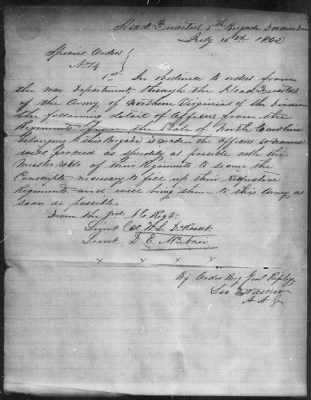 Head Quarters 5th Brigade
July 16th 1862
Special Orders
No 14
1st In obedience to orders from
the war Department through the Head Quarters
of the Army of Northern Virginia of the Division
the following detail of Officers from the
Regiments from the State of North Carolina
belonging to this Brigade is made. The officers so named
will proceed as speedily as possible with the
Muster rolls of their Regiments to secure the
Conscripts necessary to fill up their respective
Regiments and will bring them to this Army as
soon as possible.
From the 3rd N C Regt
Lieut Col W. L. DeRosset
Lieut T. E.
x x x x
By Order Brig Genl Ripley
A A G